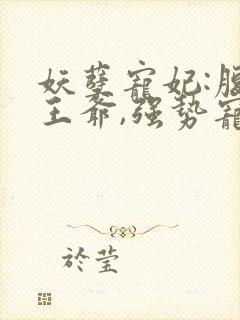 妖孽寵妃:腹
王爺,強勢寵
於瑩